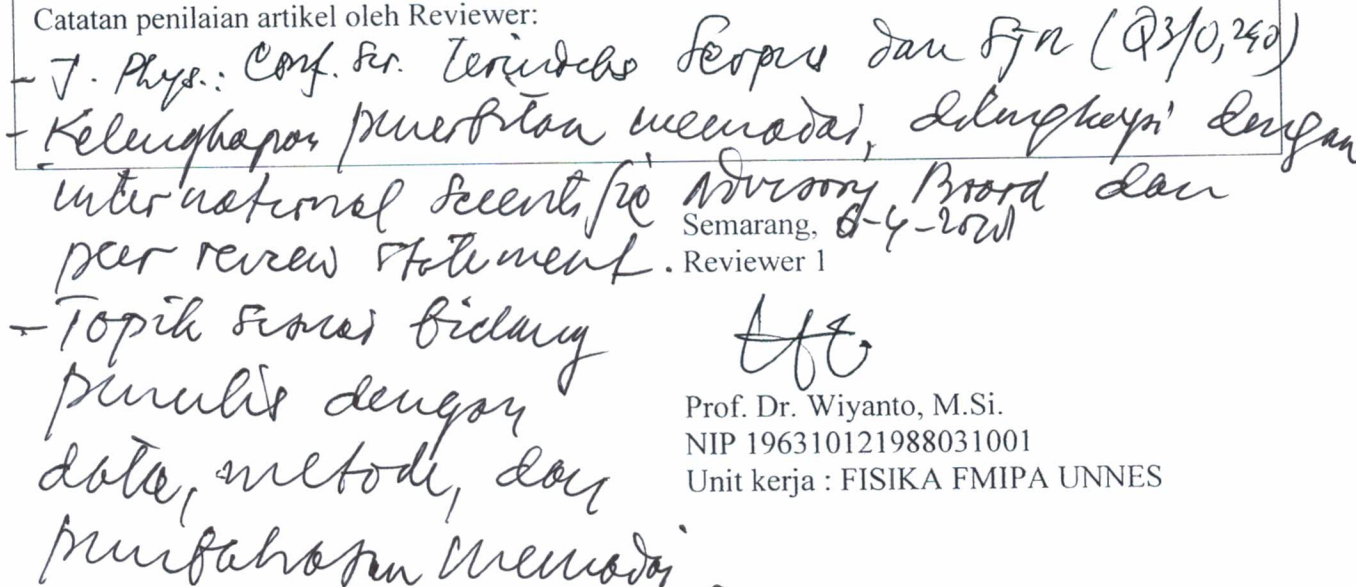 Catatan penilaian artikel oleh Reviewer:
- J. Phys.: Conf. Ser. Terindeks Scopus dan SJR (Q3/0,240)
- Kelengkapan penerbitan memadai, dilengkapi dengan
international Scientific Advisory Board dan
peer review statement.
- Topik sesuai bidang
penulis dengan
data, metode, dan
pembahasan memadai.
Semarang, 6-4-2021
Reviewer 1
Prof. Dr. Wiyanto, M.Si.
NIP 196310121988031001
Unit kerja : FISIKA FMIPA UNNES